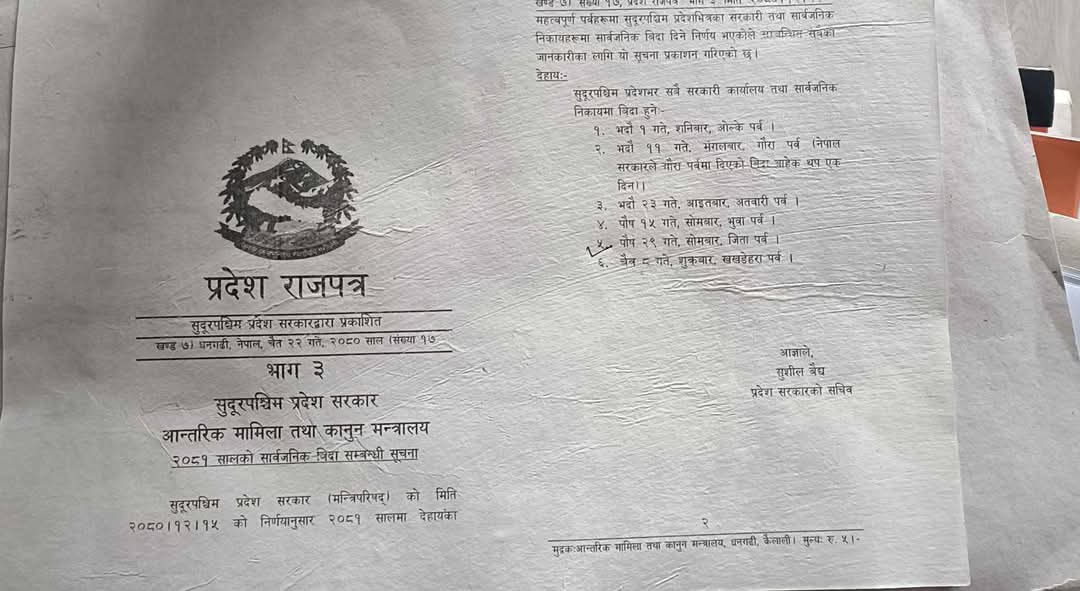 प्रदेश राजपत्र
सुदूरपश्चिम प्रदेश सरकारद्वारा प्रकाशित
खण्ड ७) धनगढी, नेपाल, चैत २२ गते, २०८० साल (संख्या १७
भाग ३
सुदूरपश्चिम प्रदेश सरकार
आन्तरिक मामिला तथा कानुन मन्त्रालय
२०८१ सालको सार्वजनिक विदा सम्बन्धी सूचना
सुदूरपश्चिम प्रदेश सरकार (मन्त्रिपरिषद्) को मिति
२०८०।१२।१५ को निर्णयानुसार २०८१ सालमा देहायका
खण्ड ७) संख्या १७, प्रदेश राजपत्र भाग ३ मिति
महत्वपूर्ण पर्वहरूमा सुदूरपश्चिम प्रदेशभित्रका सरकारी तथा सार्वजनिक
निकायहरूमा सार्वजनिक विदा दिने निर्णय भएकोले सम्बन्धित सबैको
जानकारीका लागि यो सूचना प्रकाशन गरिएको छ।
देहायः-
सुदूरपश्चिम प्रदेशभर सबै सरकारी कार्यालय तथा सार्वजनिक
निकायमा विदा हुनेः-
१. भदौ १ गते, शनिबार, ओल्के पर्व ।
२. भदौ ११ गते, मंगलबार, गौरा पर्व (नेपाल
सरकारले गौरा पर्वमा दिएको विदा बाहेक थप एक
दिन)।
३. भदौ २३ गते, आइतबार, अतवारी पर्व ।
४. पौष १५ गते, सोमबार, भुवा पर्व ।
५. पौष २९ गते, सोमबार, जिता पर्व ।
६. चैत्र ८ गते, शुक्रबार, खखडेहरा पर्व ।
आज्ञाले,
सुशील बैद्य
प्रदेश सरकारको सचिव
२
मुद्रकःआन्तरिक मामिला तथा कानुन मन्त्रालय, धनगढी, कैलाली। मुल्यः रु. ५।-